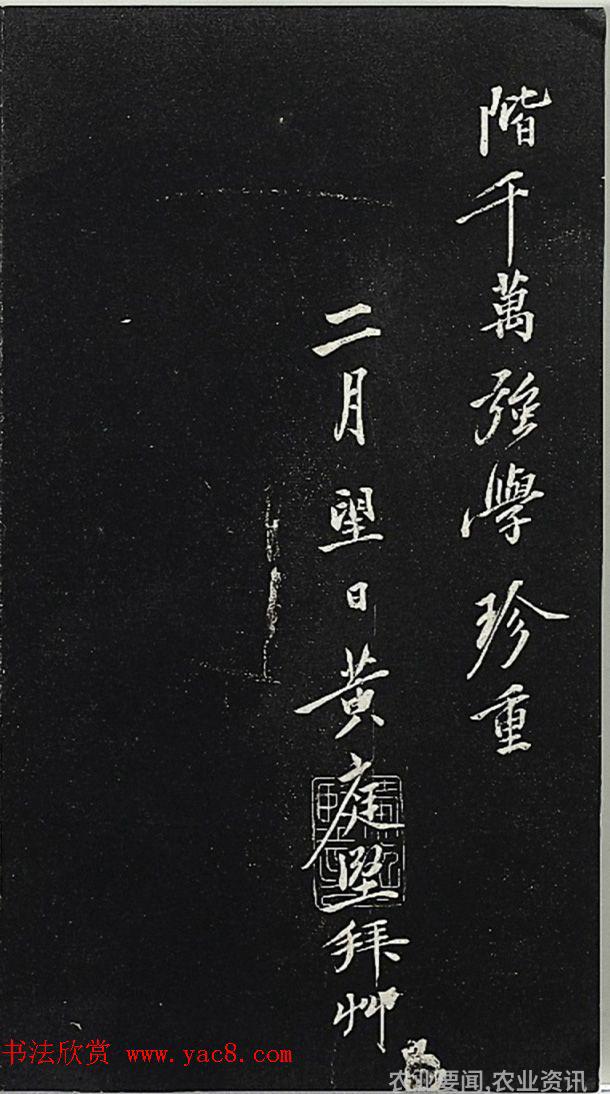 階千萬强學珍重
二月望日黃庭堅拜艸
书法欣赏 www.yac8.com
农业要闻,农业资讯